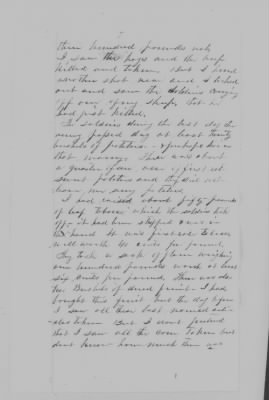 three hundred pounds net
I saw the hogs and the beef
killed and taken, But I heard
another shot near and I looked
out and saw the soldiers carrying
up one of my sheep, that he
had just killed.
The soldiers during the last day the
army passed dug at least twenty
bushels of potatoes - & perhaps more
that morning. There was about
a quarter of an acre of first rate
sweet potatoes and they did not
leave me any potatoes
I had raised about fifty pounds
of leaf Tobacco which the soldiers took
off - it had been stripped and
in hand It was first rate tobacco
well worth 40 cents per pound,
They took a sack of flour weighing
one hundred pounds worth at least
six cents per pound, There was also
two Bushels of dried fruit - I had
bought this fruit but the day before
I saw all these last named arti-
cles taken But I dont pretend
that I saw all the corn taken but
dont know - how much there was